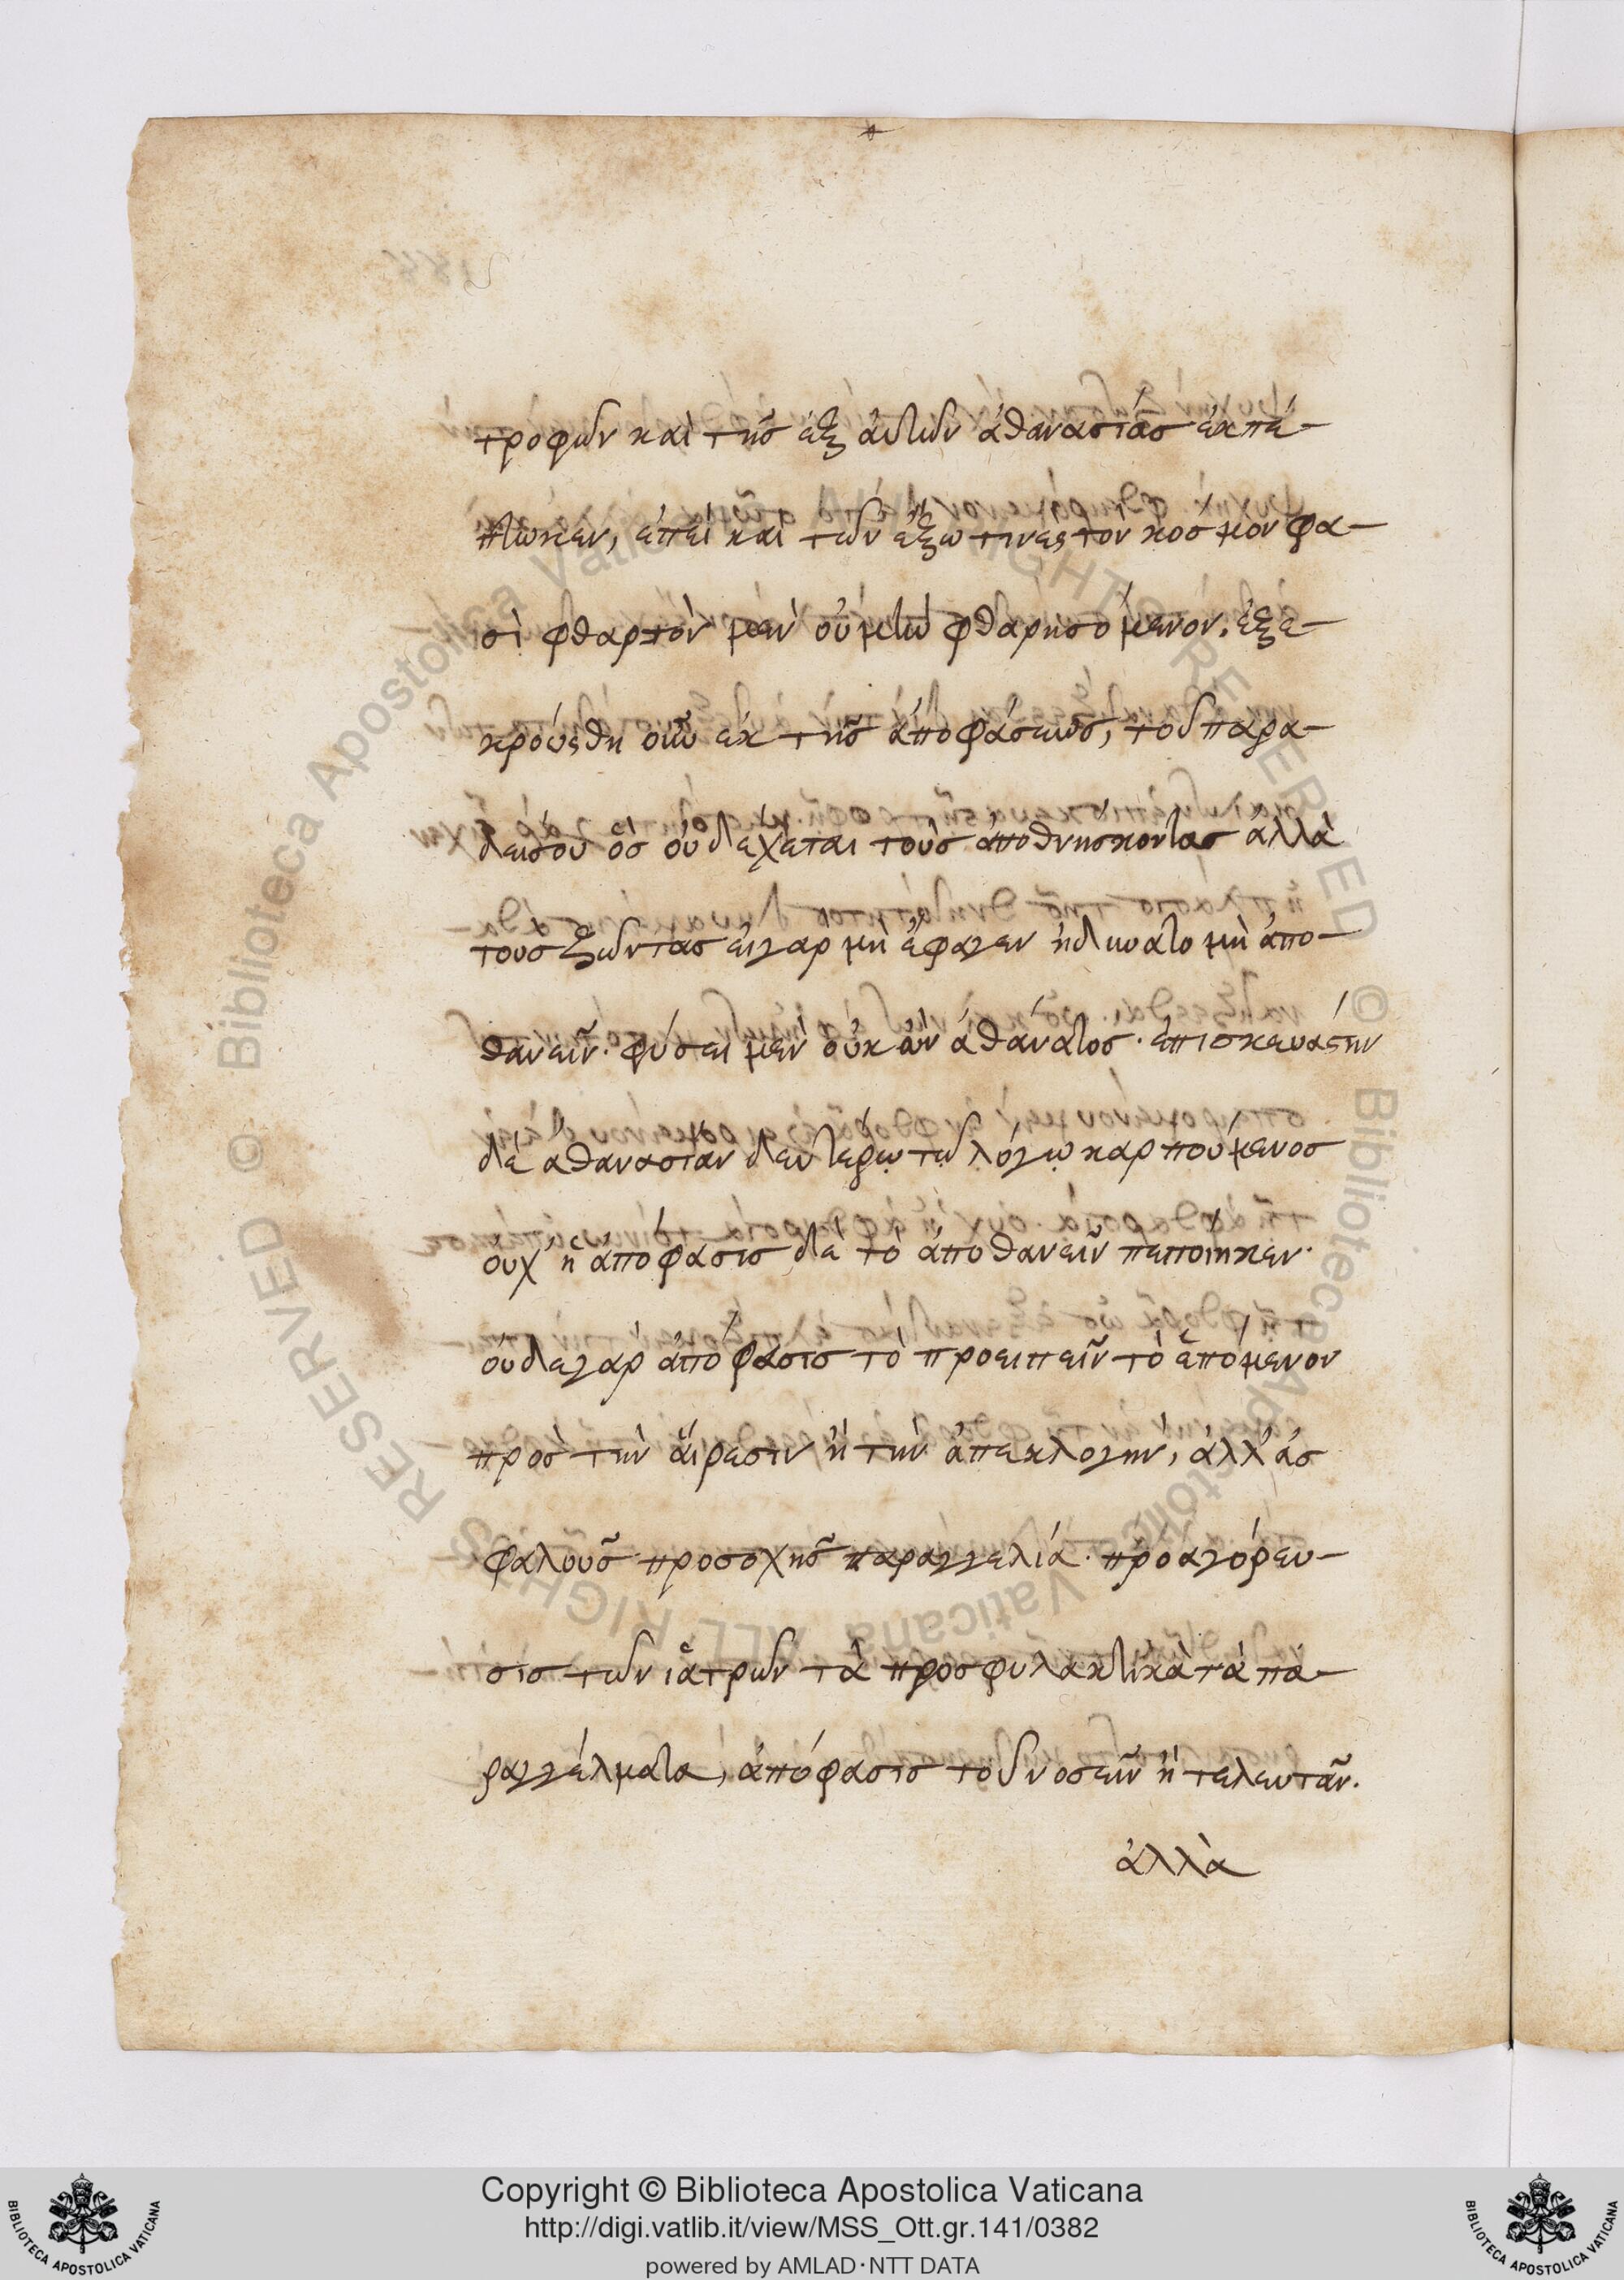 τροφῶν καὶ τῆς ἐξ αὐτῶν ἀθανασίας ἐκπέ-
πτωκεν, ἐπεὶ καὶ τῶν ἔξω τινες τον κοσμον φα-
σὶ φθαρτὸν μὲν οὐ μὴν φθαρησόμενον. ἐξε-
κρούσθη οὖν ἐκ τῆς ἀποφάσεως, τοῦ παρα-
δεισου ὃς οὐ δεχεται τοὺς ἀποθνησκοντας ἀλλὰ
τους ζῶντας ει γαρ μὴ ἔφαγεν ἠδυνατο μὴ ἀπο-
θανεῖν. φύσει μὲν οὐκ ὢν ἀθάνατος. ἐπισκευαστὴν
δὲ αθανασιαν δευτερῳ τῳ λόγῳ καρπούμενος
οὐχ' ἡ ἀποφασις δὲ τὸ ἀποθανεῖν πεποιηκεν.
οὐδε γὰρ ἀποφασις τὸ προειπεῖν τὸ ἑπόμενον
πρὸς τὴν αἵρεσιν ἢ τὴν ἀπεκλογην, ἀλλ' ἀσ
φαλοῦς προσοχῆς παραγγελιά. προαγόρευ-
σις τῶν ἰατρῶν τὰ προσφυλακτικὰ τὰ πα-
ραγγέλματα, ἀπόφασις τοῦ νοσεῖν ἢ τελευτᾶν.
ἀλλὰ
Copyright © Biblioteca Apostolica Vaticana
http://digi.vatlib.it/view/MSS_Ott.gr.141/0382
powered by AMLAD·NTT DATA